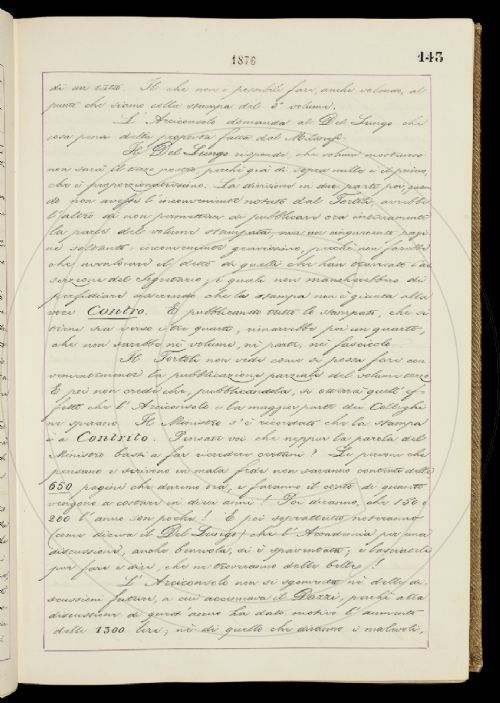 1876
143
di un tutto. Il che non è possibile fare, anche volendo, al
punto che siamo della stampa del 3º volume.
L'Arciconsolo domanda al Del Lungo che
cosa pensa della proposta fatta dal Milanesi.
Il Del Lungo risponde, che volume mostruoso
non sarà il terzo perchè già di sopra mille è il primo,
che è proporzionatissimo. La divisione in due parte poi, quan
do non avesse l'inconveniente notato dal Tortoli, avrebbe
l'altro di non permettere di pubblicare ora interamente
la parte del volume stampata, ma un cinquecento pagi
ne soltanto: inconveniente gravissimo, perchè non farebbe
che avvalorare il detto di quelli che han
del Segretario; i quali non mancherebbero di
asserendo che la stampa non è giunta alla
voce Contro. E pubblicando tutto lo stampato, che si
verso i tre quarti, rimarrebbe poi un quarto,
che non sarebbe nè volume, nè parte, nè fascicolo.
Il Tortoli non vede come si possa fare con
venientemente la pubblicazione parziale del volume terzo.
E poi non crede che, pubblicandola, si otterrà quelli ef-
fetti che l'Arciconsolo e la maggior parte dei Colleghi
ne sperano. Il Ministro s'è ricordato che la stampa
è a Contrito. Pensate voi che neppur la parola del
Ministro basti a far ricredere certuni? Le persone che
pensano e scrivono in mala fede non saranno contente delle
650 pagine che daremo ora, e faranno il conto di quanto
vengono a costare in dieci anni! Poi diranno, che 150 o
200 l'anno son poche! E poi soprattutto noteranno
(come diceva il Del Lungo) che l'Accademia per una
discussione, anche benevola, si è spaventata, e lasciatela
pur fare e dire, che ne troveremo delle belle!
L'Arciconsolo non si sgomenta nè delle di-
scussioni future, a cui accennava il Dazzi, perchè alla
discussione di quest'anno ha dato motivo l'aumento
delle 1300 lire; nè di quello che diranno i malevoli,